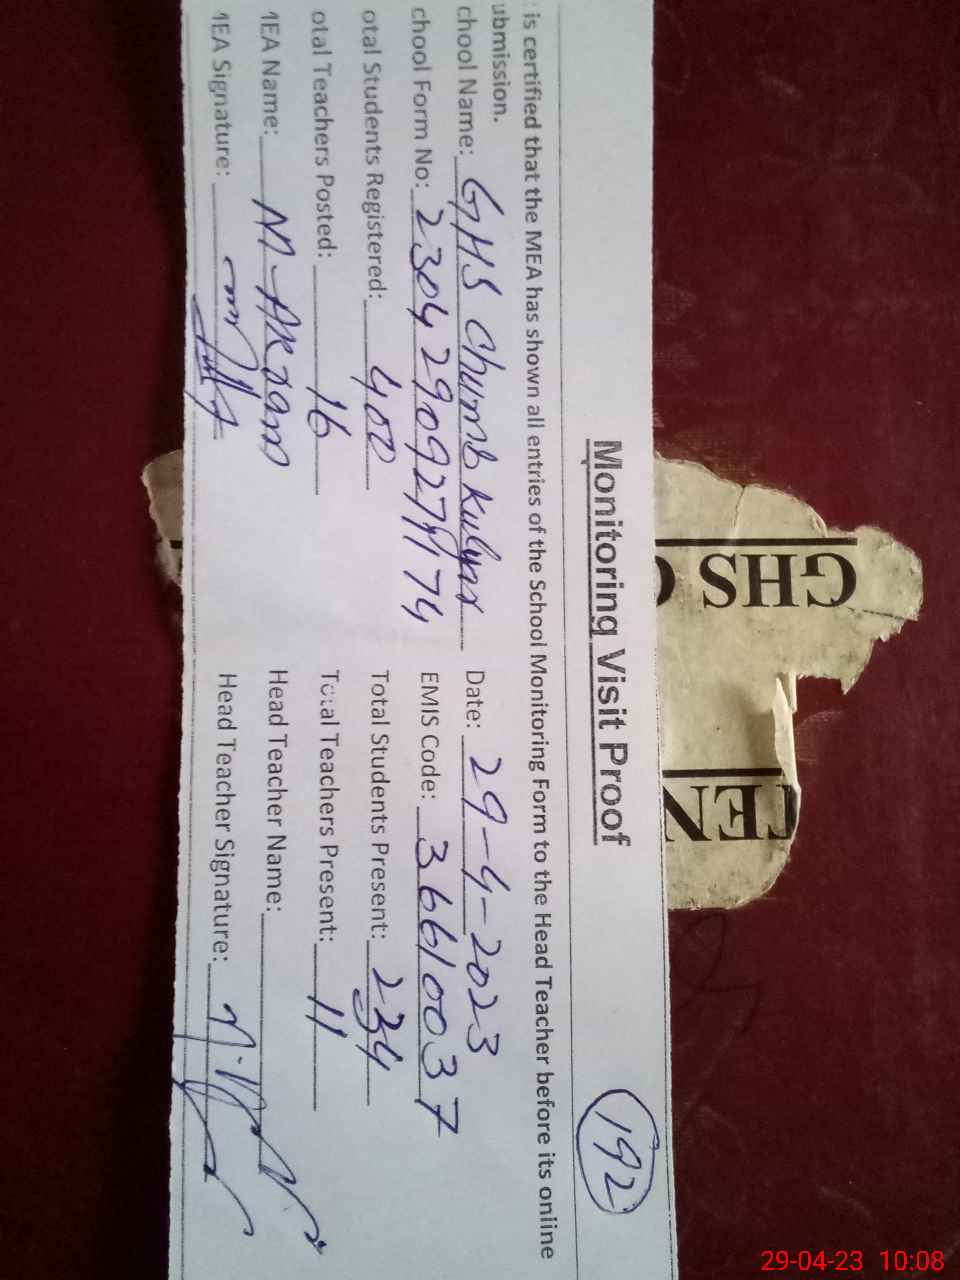 Monitoring Visit Proof
192
is certified that the MEA has shown all entries of the School Monitoring Form to the Head Teacher before its online
ubmission.
chool Name: GHS Chumb Kulyar Date: 29-4-2023
chool Form No: 2304290927174 EMIS Code: 36610037
otal Students Registered: 400 Total Students Present: 234
otal Teachers Posted: 16 Total Teachers Present: 11
MEA Name: M-Akram Head Teacher Name:
MEA Signature: Head Teacher Signature:
GHS C
TEN
29-04-23 10:08